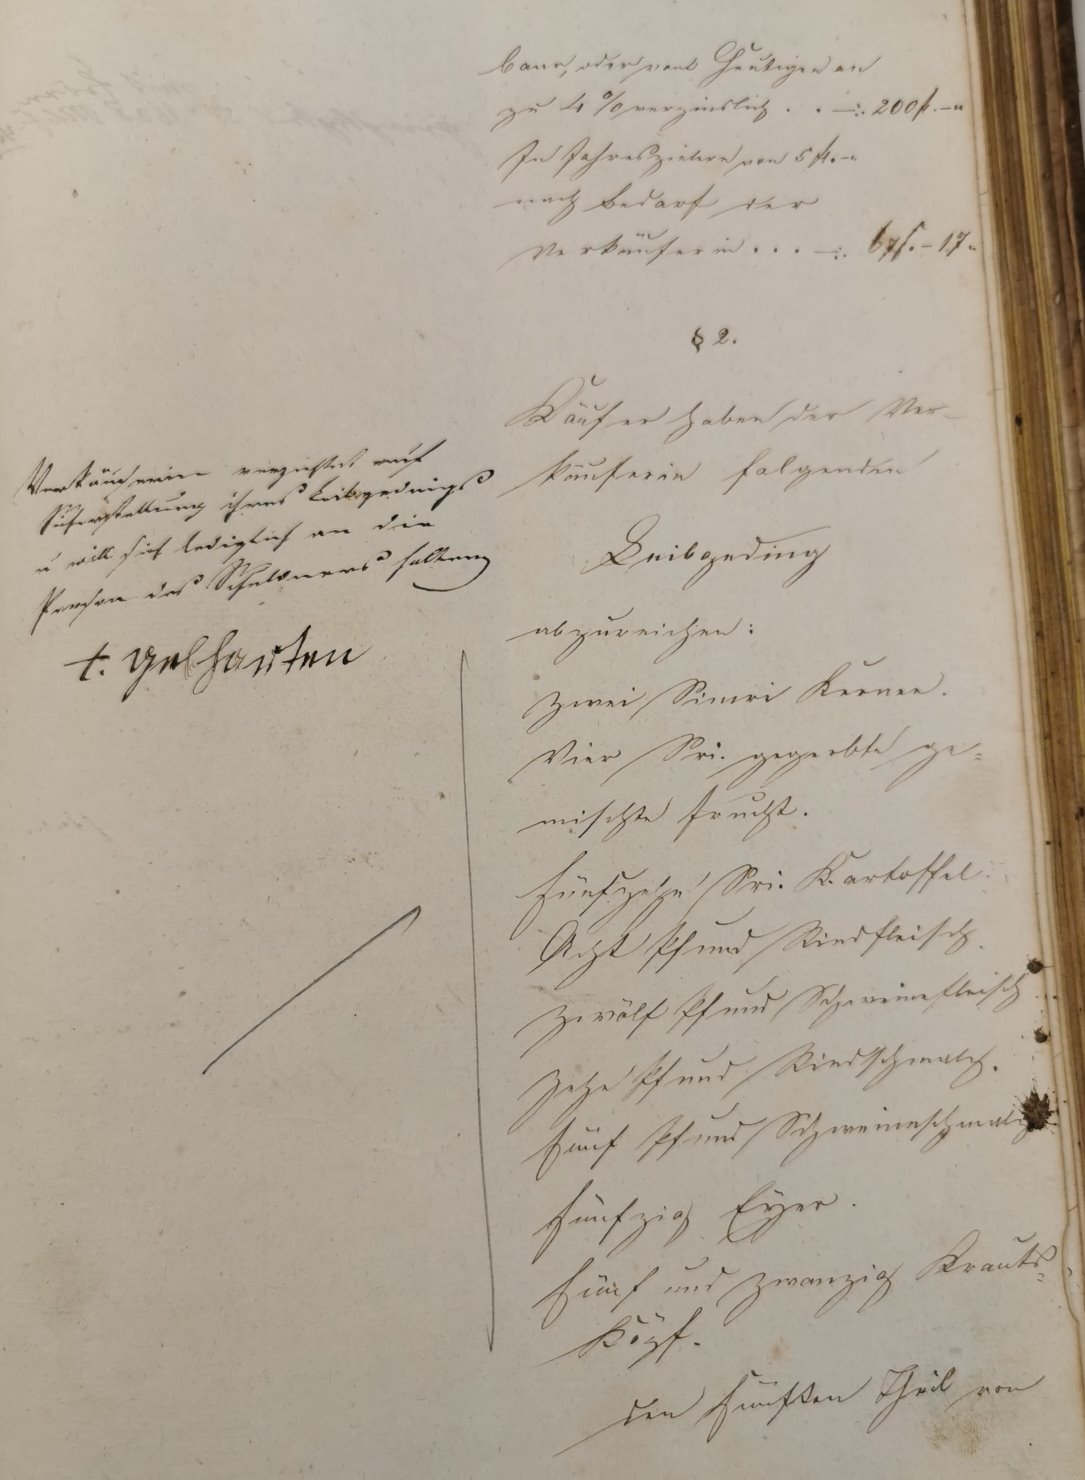 baar, oder vom Heutigen an
zu 4 % verzinslich . . —:. 200 f. —„
In Jahreszielern von 5 f. —„
nach Bedarf der
Verkäuferin . . . —:. 67 f. — 17 „
§ 2.
Käufer haben der Ver-
käuferin folgenden
Leibgeding
abzureichen:
Zwei Simri Kernen.
Vier Sri. gegerbte ge-
mischte Frucht.
Fünfzehn Sri. Kartoffel.
Acht Pfund Rindfleisch.
Zwölf Pfund Schweinefleisch.
Zehn Pfund Rindschmalz.
Fünf Pfund Schweineschmalz.
Fünfzig Eyer.
Fünf und zwanzig Krauts-
Köpf.
den fünften Theil von
Verkäuferin verzichtet auf
Sicherstellung ihres Leibgedings
u will sich lediglich an die
Person des Schuldners halten
t. Gelhauten